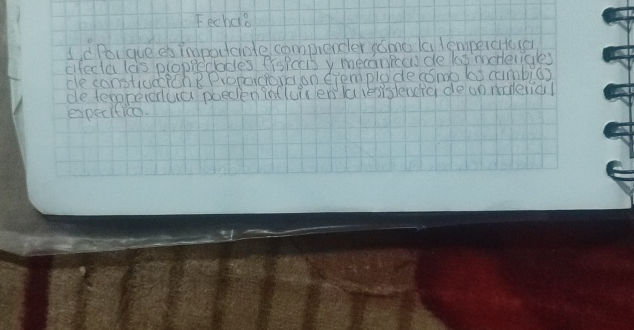 Fecha:
1. ¿Por que es importante comprender cómo la temperatura
afecta las propiedades físicas y mecanicas de los materiales
de construcción? Proporciona un ejemplo de cómo los cambios
de temperatura pueden influir en la resistencia de un material
especifico.